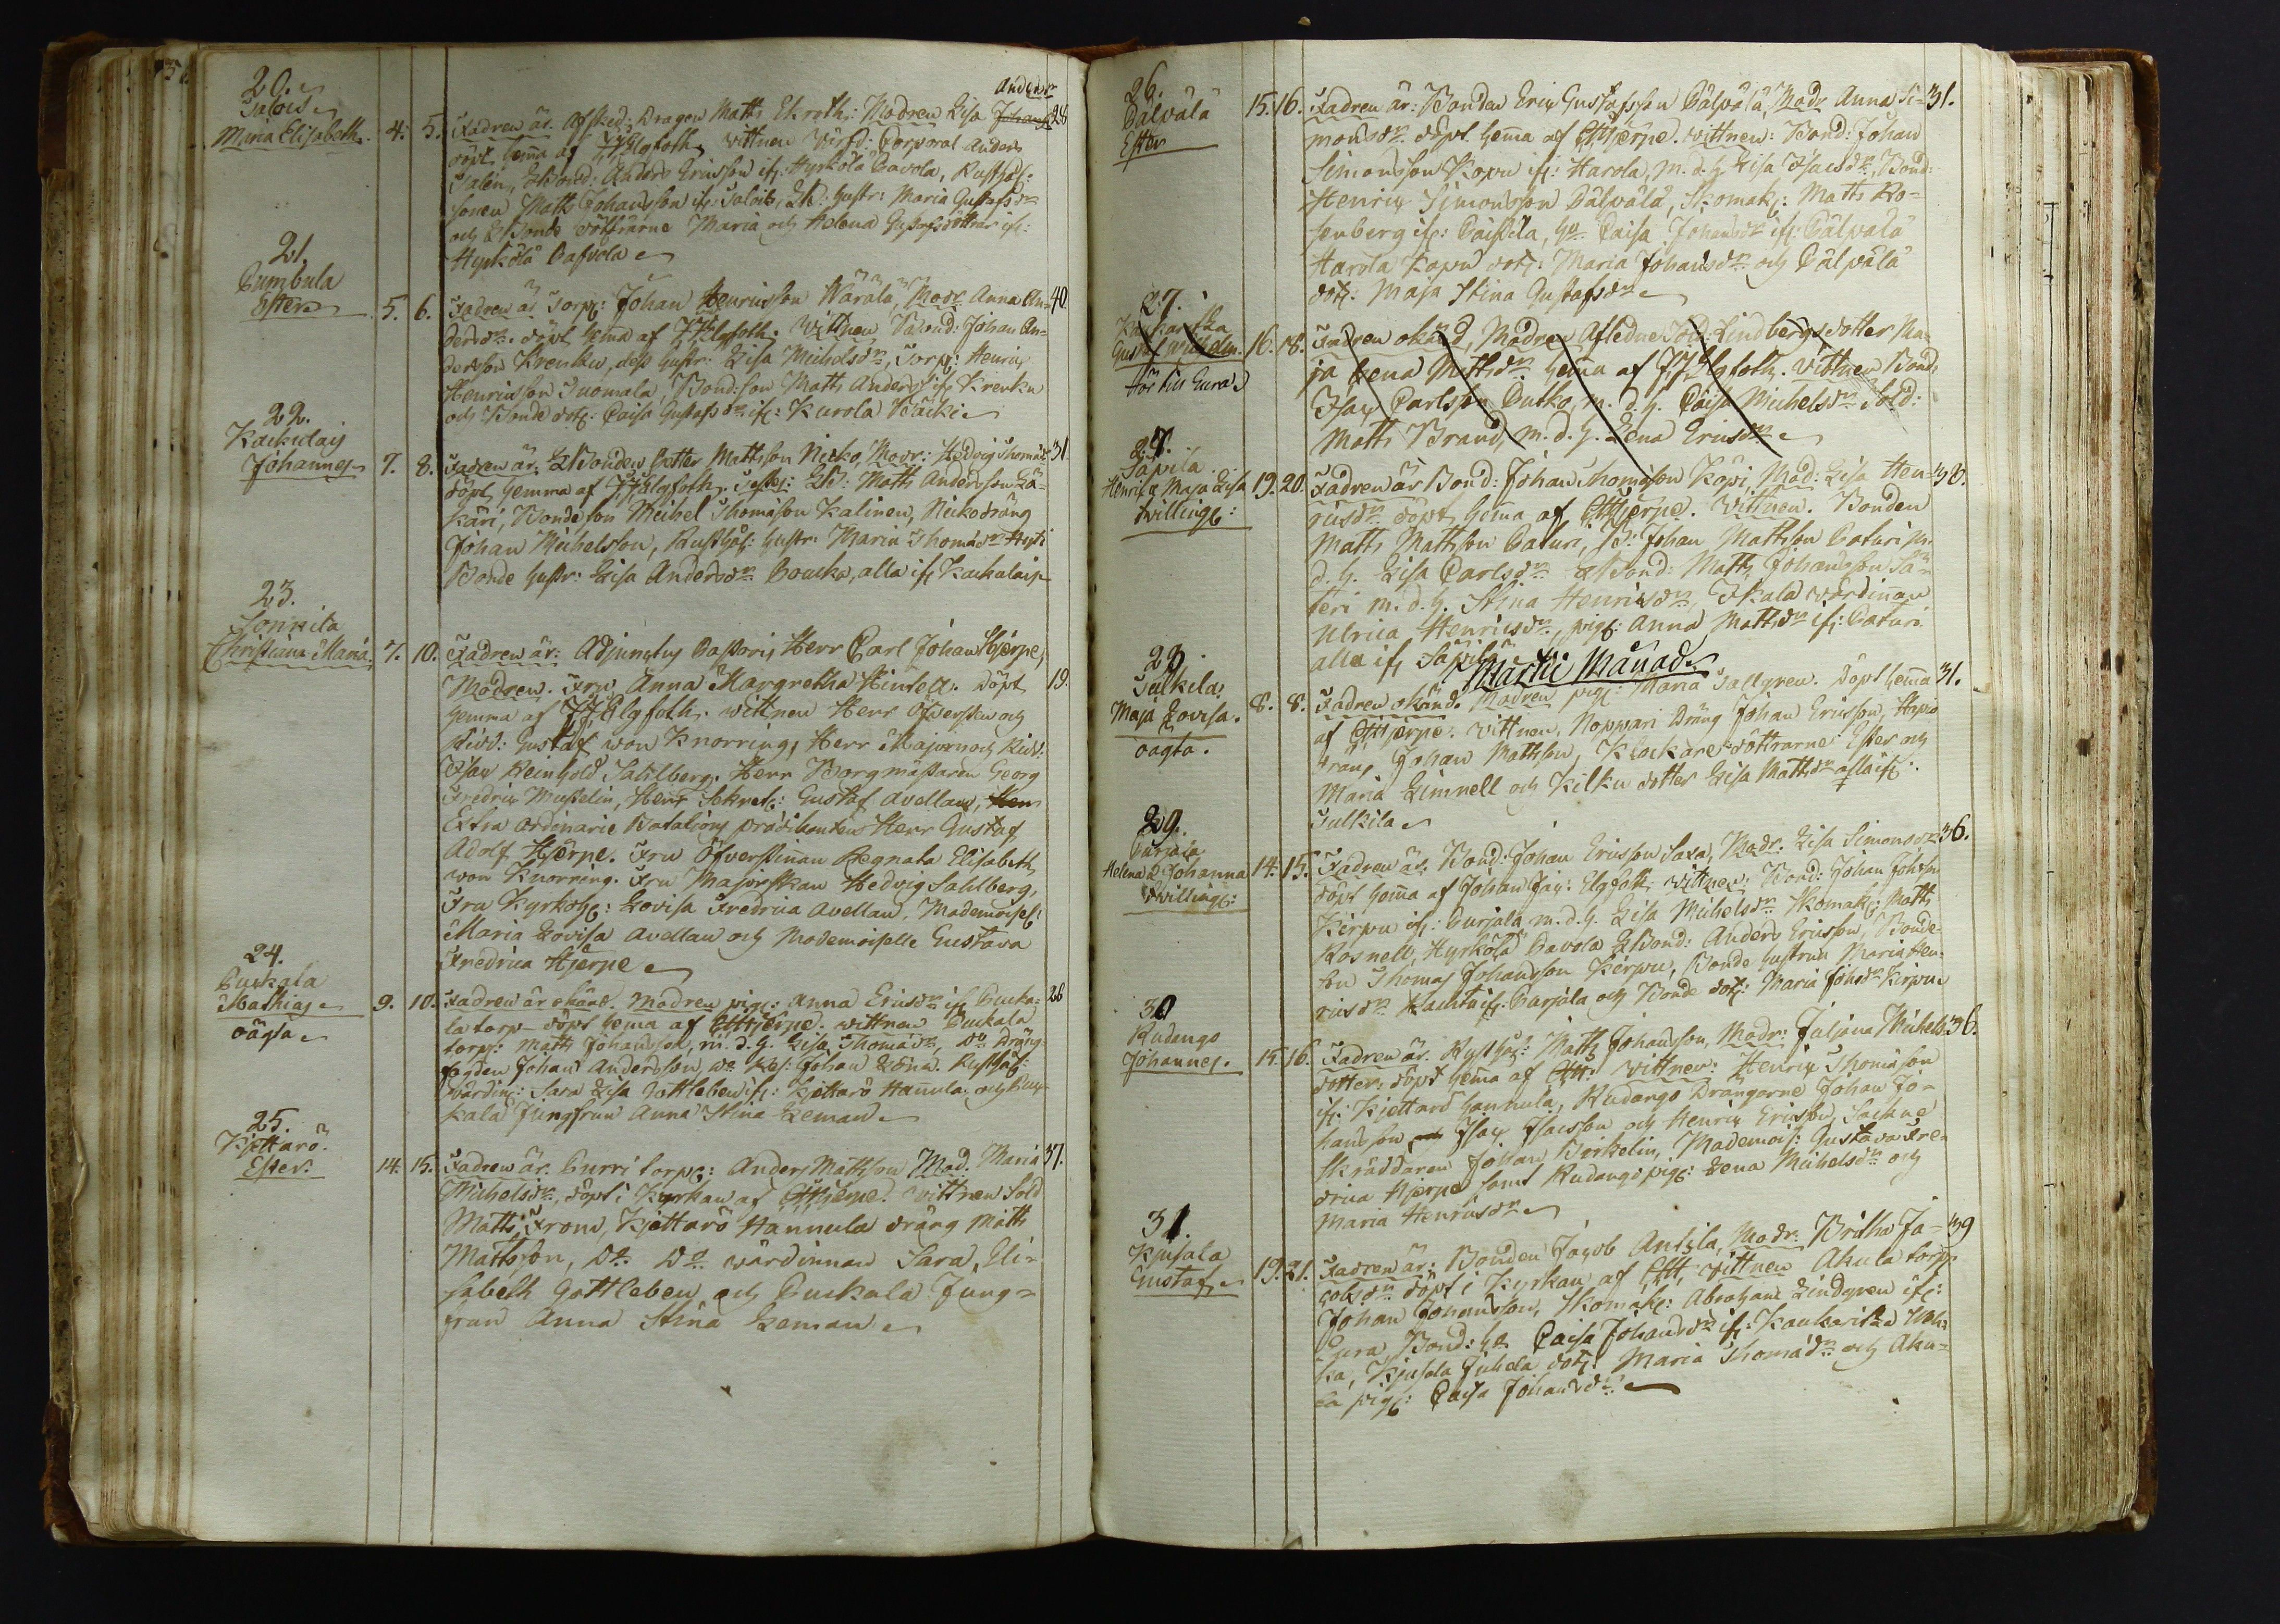 20.
Salois
Maria Elisabeth. 4. 5. Fadren är. Afsked: Dragon Matts Ekroth: Modren Lisa Johansd 28
Anders dr
döpt hemma af JJElgfoth, Vittnen Värfd: Corporal Anders
Salén, LBond: Anders Ericsson ifr: Hyrkölä Pavola, Rusthåll:
sonen Matts Johansson ifr: Salois, LB: hustr: Maria Gustafsdr
och LBonde döttrarne Maria och Helena Gustafsdöttrar ifr:
Hyrkölä Pavola
21.
Pumbula
Ester 5. 6. Fadren är Torp: Johan Henricsson Wärälä, Modr. Anna An= 40.
dersdr. döpt hemma af JJElgfoth. Vittnen Bond: Johan An=
dersson Krenku, dess hustr: Lisa Michelsdr, Torp: Henric
Henricsson Tuomala, Bondeson Matts Anders ifr Krenku
och Bonde dotr: Caisa Gustafsdr ifr: Kurola Bäcki
22.
Kaukulais
Johannes 7. 8. Fadren är. LBonden Petter Mattsson Nicko, Modr: Hedvig Thomasd 31
döpt hemma af JJElgfoth. Test: LB: Matts Andersson Lä=
käri, Bonde son Michel Thomasson Kalinen, Nicko dräng
Johan Michelsson, Rusthåll: hustr: Maria Thomasdr Hyti
Bonde hustr: Lisa Andersdr Poucka, alla ifr Kaukulais
23.
Sonkila
Christiana Maria. 7. 10. Fadren är: Adjunctus Pastoris Herr Carl Johan Hjerpe,
Modren. Fru Anna Margretha Hintell. Döpt 19.
hemma af JJElgfoth. Vittnen Herr Öfversten och
Ridd: Gustaf von Knorring, Herr Majoren och Ridd:
Isac Reinhold Sahlberg. Herr Borgmästaren Georg
Fredric Muselin, Herr Sekret: Gustaf Avellan, Herr
Extra ordinarie Batalions prädikanten Herr Gustaf
Adolf Hjerpe. Fru Öfverstinnan Regnata Elisabeth
von Knorring. Fru Majorskan Hedvig Sahlberg,
Fru Kyrkoh: Lovisa Fredrica Avellan, Mademoisel:
Maria Lovisa Avellan och Mademoiselle Gustava
Fredrica Hjerpe
24.
Puckala
Mathias 9. 10. Fadren är okänd. Modren pig: Anna Ericsdr ifr Pucka= 26
oägta
la torp döpt hemma af CHjerpe. Vittnen Puckala
torp: Matts Johansson, m. d. h. Lisa Thomasdr, Do Dräng
fogden Johan Andersson, Do Kos: Johan Löna. Rusthåll:
värdin: Sara Lisa Gottleben ifr: Kjettarö Hannula och Puc
kala Jungfrun Anna Stina Leman
25.
Kjettarö.
Ester. 14. 15. Fadren är. Purri torp: Anders Mattsson Mod. Maria 37.
Michelsdr, döpt i Kyrkan af CHjerpe. Vittnen Sold
Matts From, Kjettarö Hannula dräng Matts
Mattsson, Do. Do. värdinnan Sara Eli=
sabeth Gottleben och Puckala Jung=
frun Anna Stina Leman
26.
Pälpälä 15. 16. Fadren är: Bonden Eric Gustafsson Pälpälä, Modr Anna Si= 31.
Ester
monsdr. döpt hemma af CHjerpe. Vittnen: Bond: Johan
Simonsson Kopu ifr: Harola, m. d. h. Lisa Isacsdr, Bond:
Henric Simonsson Pälpälä, Skomak: Matts Ro=
senberg ifr: Paissila, ho. Caisa Johansdr ifr: Pälpälä
Harola Kopu dotr: Maria Johansdr och Pälpälä
dotr. Maja Stina Gustafsdr
27.
Gustaf Wilhelm. 16. 18. Fadren okänd, Modren Aflidne Sold: Lindbergs dotter Ma
hör till Eura
ja Lena Mattsdr hemma af JJElgfoth. Vittnen Bond:
Isac Carlsson Putko, m. d. h. Caisa Michelsdr Sold:
Matts Brand, m. d. h. Lena Ericsdr
27.
Säpilä
Henric & Maja Lisa 19. 20. Fadren är Bond: Johan Thomasson Köpi, Mod: Lisa Hen= 38.
tvilling:
ricsdr döpt hemma af CHjerpe. Vittnen. Bonden
Matts Mattsson Paturi, B: Johan Mattsson Paturi m.
d. h. Lisa Carlsdr LBond: Matts Johansson Sä=
teri m. d. h. Stina Henricsdr, Skala värdinnan
Ulrica Henricsdr, pig: Anna Mattsdr ifr: Paturi
alla ifr Säpilä
Martii Månad.
28.
Sulkila,
Maja Lovisa. 8. 8. Fadren okänd. Modren pig: Maria Sallgren. Döpt hemma 31.
oägta.
af CHjerpe. Vittnen, Noppari Dräng Johan Ericsson, Hepio
dräng Johan Mattsson, Klockare döttrarne Ester och
Maria Limnell och Kilku dotter Lisa Mattsdr alla ifr:
Sulkila
29.
Purjala
Helena & Johanna 14. 15. Fadren är. Bond: Johan Ericsson Saxa, Modr. Lisa Simonsdr 36.
tvilling:
döpt hemma af Johan Jac: Elgfoth. Vittnen: Bond: Johan Johansson
Kirpu ifr: Purjala, m. d. h. Lisa Michelsdr Skomak: Matts
Rosnell, Hyrkölä Pavola LBond: Anders Ericsson, Bonde
son Thomas Johansson Kirpu, Bonde hustrun Maria Hen
ricsdr Kauttu ifr: Purjala och Bonde dotr: Maria Johsdr Kirpu
30
Rudango
Johannes. 15. 16. Fadren är. Rusthåll: Matts Johansson, Modr: Juliana Michels 36.
dotter. döpt hemma af CH. Vittnen: Henric Thomasson
ifr: Kjettarö Hannula, Rudango Drängarne Johan Jo=
hansson och Isac Isacsson och Henric Ericsson, Sockne
Skräddaren Johan Birkelin, Mademois: Gustava Fre=
drica Hjerpe samt Rudango pig: Lena Michelsdr och
Maria Henricsdr
31.
Kjusala
Gustaf 19. 21. Fadren är: Bonden Jacob Antila, Modr: Britha Ja= 39
cobsdr döpt i Kyrkan af CH, Vittnen Akula torp
Johan Johansson, Skomak: Abraham Lindgren ifr:
Eura, Bond: ho Caisa Johansdr ifr: Kaukarista
ka, Kjusala Juhola dotr: Maria Thomasdr och Aku=
la pig: Caisa Johansdr